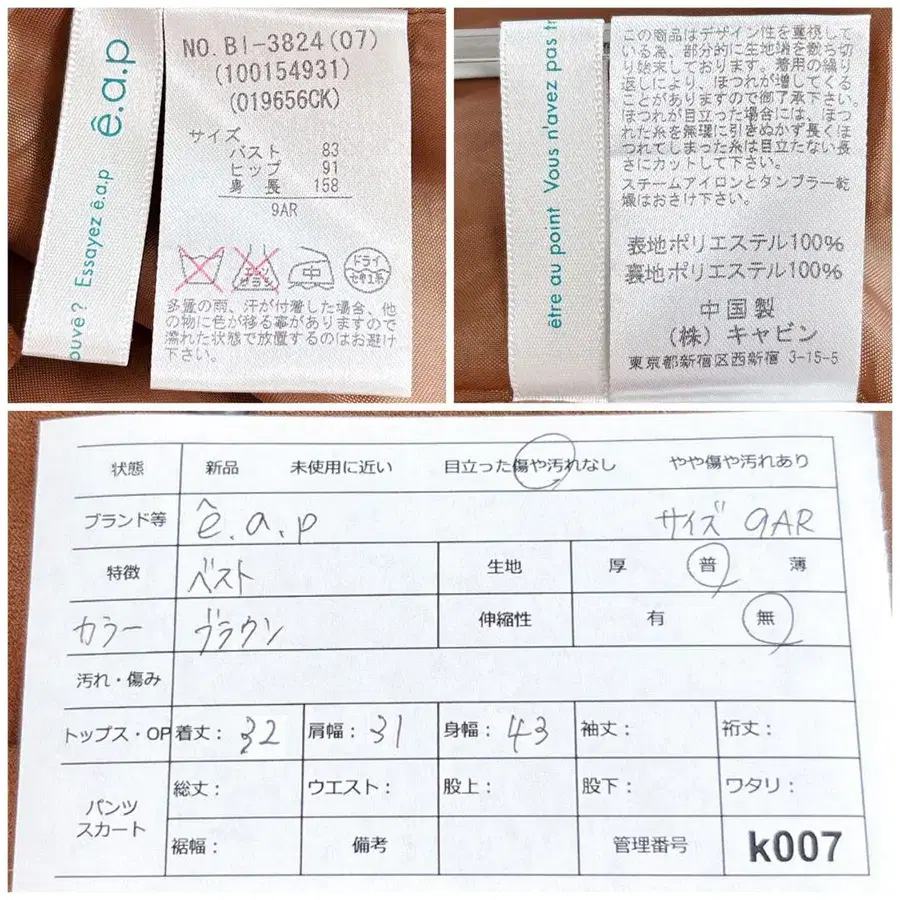 ê.a.p
Essayez ê.a.p
ouvé?
NO. BI-3824(07)
(100154931)
(019656CK)
サイズ
バスト 83
ヒップ 91
身長 158
9AR
エンソ
サラシ
中
ドライ
セキユ系
多量の雨、汗が付着した場合、他
の物に色が移る事がありますので
濡れた状態で放置するのはお避け
下さい。
être au point Vous n'avez pas tr
この商品はデザイン性を重視して
いる為、部分的に生地端を裁ち切
り始末しております。着用の繰り
返しにより、ほつれが増してくる
ことがありますので御了承下さい。
ほつれが目立った場合には、ほつ
れた糸を無理に引きぬかず長くほ
つれてしまった糸は目立たない長
さにカットして下さい。
スチームアイロンとタンブラー乾
燥はおさけ下さい。
表地ポリエステル100%
裏地ポリエステル100%
中国製
(株)キャビン
東京都新宿区西新宿 3-15-5
状態 新品 未使用に近い 目立った傷や汚れなし やや傷や汚れあり
ブランド等 ê.a.p サイズ 9AR
特徴 ベスト 生地 厚 普 薄
カラー ブラウン 伸縮性 有 無
汚れ・傷み
トップス・OP 着丈: 32 肩幅: 31 身幅: 43 袖丈: 裄丈:
パンツ
スカート
総丈: ウエスト: 股上: 股下: ワタリ:
裾幅: 備考 管理番号 k007